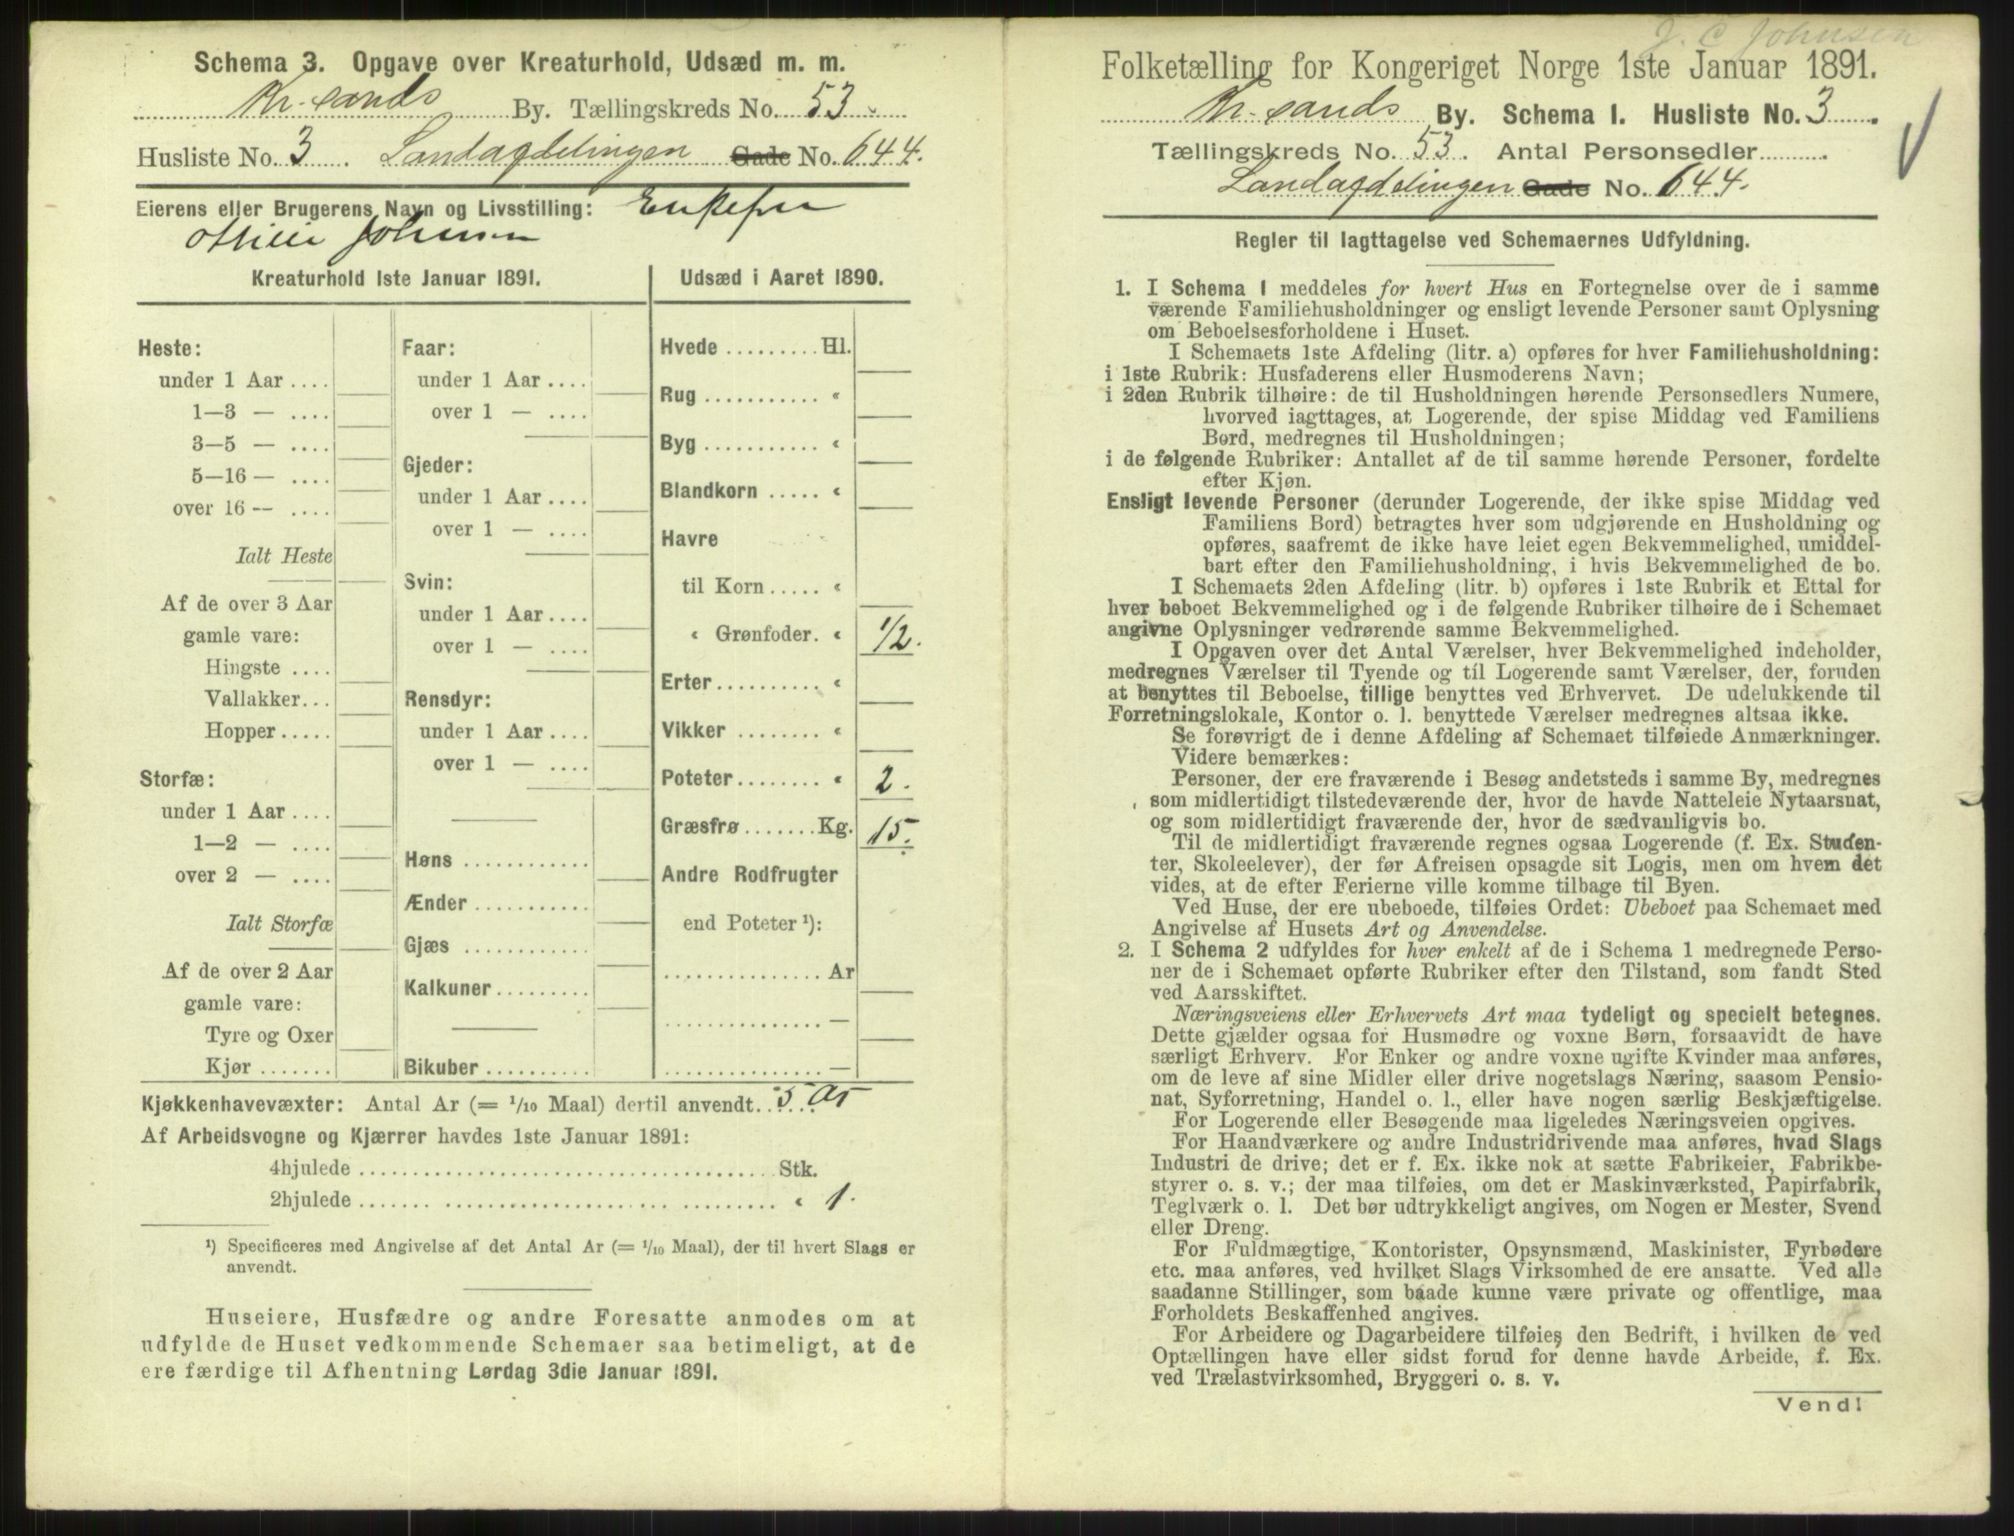 Schema 3. Opgave over Kreaturhold, Udsæd m. m.
Kr.sands By. Tællingskreds No. 53
Husliste No. 3. Landafdelingen Gade No. 644.
Eierens eller Brugerens Navn og Livsstilling: Enkefru
Ottilie Johnsen
Kreaturhold 1ste Januar 1891.
Heste:
under 1 Aar ....
1—3 — ....
3—5 — ....
5—16 — ....
over 16 — ....
Ialt Heste
Af de over 3 Aar
gamle vare:
Hingste ....
Vallakker...
Hopper .....
Storfæ:
under 1 Aar ....
1—2 — ....
over 2 — ....
Ialt Storfæ
Af de over 2 Aar
gamle vare:
Tyre og Oxer
Kjør .......
Faar:
under 1 Aar ....
over 1 — ....
Gjeder:
under 1 Aar ....
over 1 — ....
Svin:
under 1 Aar ....
over 1 — ....
Rensdyr:
under 1 Aar ....
over 1 — ....
Høns ............
Ænder ...........
Gjæs ............
Kalkuner .........
Bikuber ..........
Udsæd i Aaret 1890.
Hvede ......... Hl.
Rug ........... «
Byg ........... «
Blandkorn ..... «
Havre
til Korn ..... «
« Grønfoder. « 1/2.
Erter .......... «
Vikker ........ «
Poteter ........ « 2.
Græsfrø ....... Kg. 15.
Andre Rodfrugter
end Poteter ¹):
............... Ar
............... —
............... —
Kjøkkenhavevæxter: Antal Ar (= 1/10 Maal) dertil anvendt. 5 Ar
Af Arbeidsvogne og Kjærrer havdes 1ste Januar 1891:
4hjulede ........................................ Stk.
2hjulede ........................................ « 1.
¹) Specificeres med Angivelse af det Antal Ar (= 1/10 Maal), der til hvert Slags er
anvendt.
Huseiere, Husfædre og andre Foresatte anmodes om at
udfylde de Huset vedkommende Schemaer saa betimeligt, at de
ere færdige til Afhentning Lørdag 3die Januar 1891.
J. C Johnsen
Folketælling for Kongeriget Norge 1ste Januar 1891.
Kr.sands By. Schema 1. Husliste No. 3.
Tællingskreds No. 53. Antal Personsedler .........
Landafdelingen Gade No. 644.
Regler til Iagttagelse ved Schemaernes Udfyldning.
1. I Schema 1 meddeles for hvert Hus en Fortegnelse over de i samme
værende Familiehusholdninger og ensligt levende Personer samt Oplysning
om Beboelsesforholdene i Huset.
I Schemaets 1ste Afdeling (litr. a) opføres for hver Familiehusholdning:
i 1ste Rubrik: Husfaderens eller Husmoderens Navn;
i 2den Rubrik tilhøire: de til Husholdningen hørende Personsedlers Numere,
hvorved iagttages, at Logerende, der spise Middag ved Familiens
Bord, medregnes til Husholdningen;
i de følgende Rubriker: Antallet af de til samme hørende Personer, fordelte
efter Kjøn.
Ensligt levende Personer (derunder Logerende, der ikke spise Middag ved
Familiens Bord) betragtes hver som udgjørende en Husholdning og
opføres, saafremt de ikke have leiet egen Bekvemmelighed, umiddel-
bart efter den Familiehusholdning, i hvis Bekvemmelighed de bo.
I Schemaets 2den Afdeling (litr. b) opføres i 1ste Rubrik et Ettal for
hver beboet Bekvemmelighed og i de følgende Rubriker tilhøire de i Schemaet
angivne Oplysninger vedrørende samme Bekvemmelighed.
I Opgaven over det Antal Værelser, hver Bekvemmelighed indeholder,
medregnes Værelser til Tyende og til Logerende samt Værelser, der, foruden
at benyttes til Beboelse, tillige benyttes ved Erhvervet. De udelukkende til
Forretningslokale, Kontor o. l. benyttede Værelser medregnes altsaa ikke.
Se forøvrigt de i denne Afdeling af Schemaet tilføiede Anmærkninger.
Videre bemærkes:
Personer, der ere fraværende i Besøg andetsteds i samme By, medregnes
som midlertidigt tilstedeværende der, hvor de havde Natteleie Nytaarsnat,
og som midlertidigt fraværende der, hvor de sædvanligvis bo.
Til de midlertidigt fraværende regnes ogsaa Logerende (f. Ex. Studen-
ter, Skoleelever), der før Afreisen opsagde sit Logis, men om hvem det
vides, at de efter Ferierne ville komme tilbage til Byen.
Ved Huse, der ere ubeboede, tilføies Ordet: Ubeboet paa Schemaet med
Angivelse af Husets Art og Anvendelse.
2. I Schema 2 udfyldes for hver enkelt af de i Schema 1 medregnede Perso-
ner de i Schemaet opførte Rubriker efter den Tilstand, som fandt Sted
ved Aarsskiftet.
Næringsveiens eller Erhvervets Art maa tydeligt og specielt betegnes.
Dette gjælder ogsaa for Husmødre og voxne Børn, forsaavidt de have
særligt Erhverv. For Enker og andre voxne ugifte Kvinder maa anføres,
om de leve af sine Midler eller drive nogetslags Næring, saasom Pensio-
nat, Syforretning, Handel o. l., eller have nogen særlig Beskjæftigelse.
For Logerende eller Besøgende maa ligeledes Næringsveien opgives.
For Haandværkere og andre Industridrivende maa anføres, hvad Slags
Industri de drive; det er f. Ex. ikke nok at sætte Fabrikeier, Fabrikbe-
styrer o. s. v.; der maa tilføies, om det er Maskinværksted, Papirfabrik,
Teglværk o. l. Det bør udtrykkeligt angives, om Nogen er Mester, Svend
eller Dreng.
For Fuldmægtige, Kontorister, Opsynsmænd, Maskinister, Fyrbødere
etc. maa anføres, ved hvilket Slags Virksomhed de ere ansatte. Ved alle
saadanne Stillinger, som baade kunne være private og offentlige, maa
Forholdets Beskaffenhed angives.
For Arbeidere og Dagarbeidere tilføies den Bedrift, i hvilken de ved
Optællingen have eller sidst forud for denne havde Arbeide, f. Ex.
ved Trælastvirksomhed, Bryggeri o. s. v.
Vend!